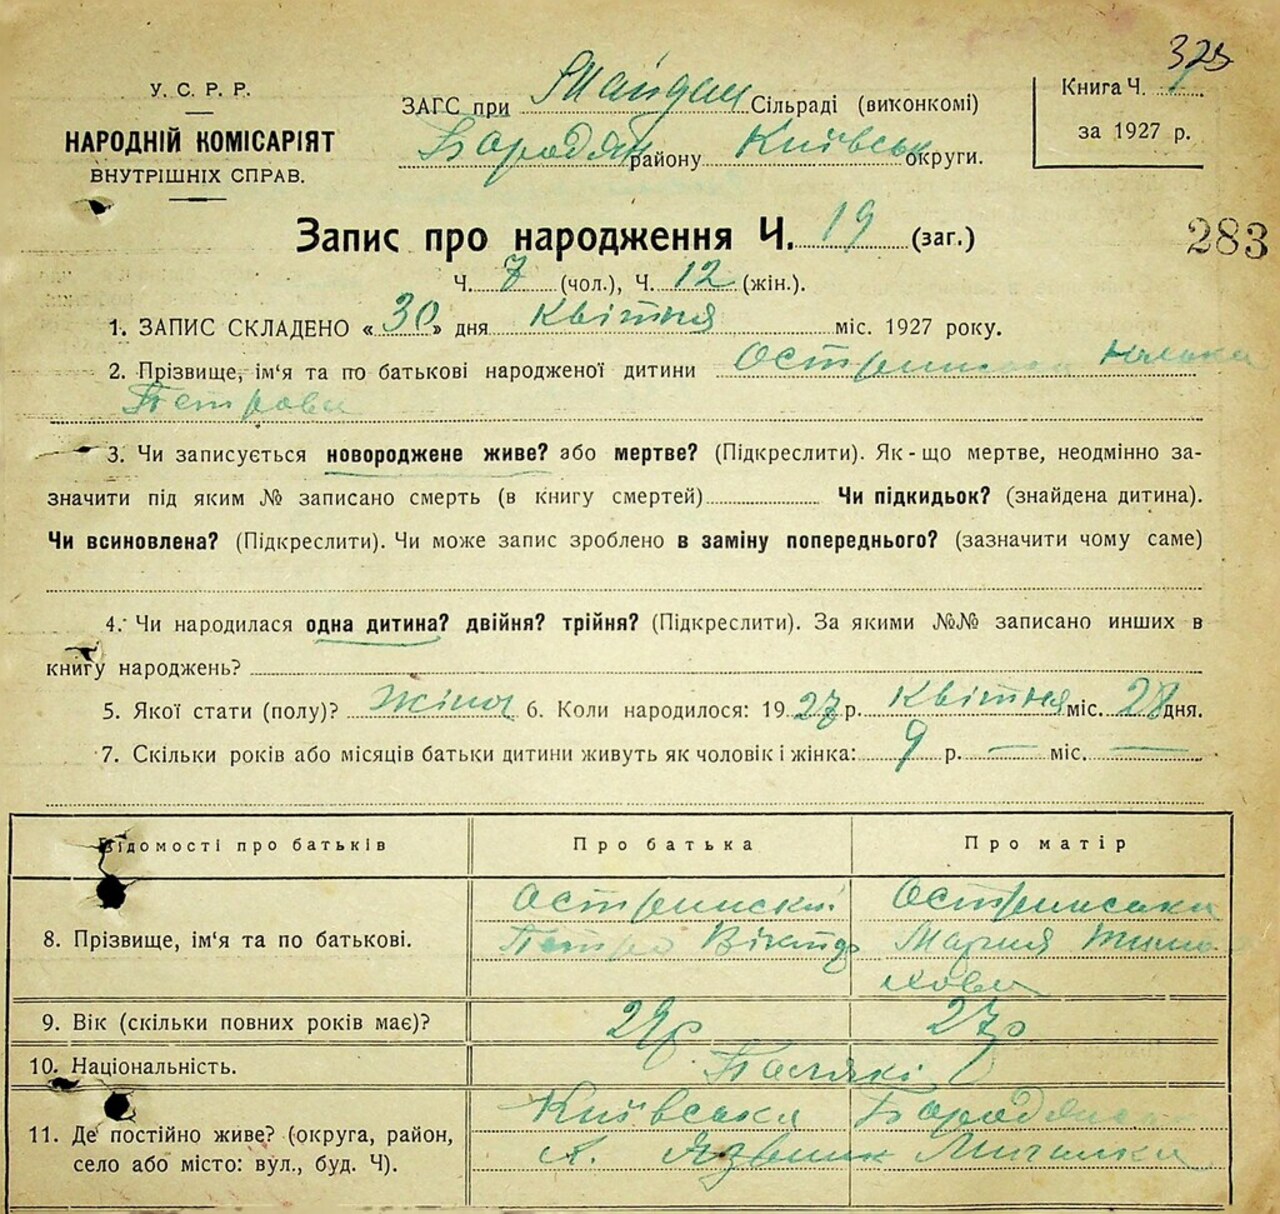 325
У. С. Р. Р.
НАРОДНІЙ КОМІСАРІЯТ
ВНУТРІШНІХ СПРАВ.
ЗАГС при Майдан Сільраді (виконкомі)
Бородян району Київськ округи.
Книга Ч.
за 1927 р.
283
Запис про народження Ч. 19 (заг.)
Ч. 7 (чол.), Ч. 12 (жін.).
1. ЗАПИС СКЛАДЕНО «30» дня Квітня міс. 1927 року.
2. Прізвище, ім'я та по батькові народженої дитини
Петрова
3. Чи записується новороджене живе? або мертве? (Підкреслити). Як-що мертве, неодмінно за-
значити під яким № записано смерть (в книгу смертей) Чи підкидьок? (знайдена дитина).
Чи всиновлена? (Підкреслити). Чи може запис зроблено в заміну попереднього? (зазначити чому саме)
4. Чи народилася одна дитина? двійня? трійня? (Підкреслити). За якими №№ записано инших в
книгу народжень?
5. Якої стати (полу)? Жіноч 6. Коли народилося: 1927 р. Квітня міс. 28 дня.
7. Скільки років або місяців батьки дитини живуть як чоловік і жінка: 9 р. — міс. —
Відомості про батьків Про батька Про матір
8. Прізвище, ім'я та по батькові.
Петро Віктор Мария
9. Вік (скільки повних років має)? 29р 27р
10. Національність. Паляки
11. Де постійно живе? (округа, район,
село або місто: вул., буд. Ч).
Київська Бородянс